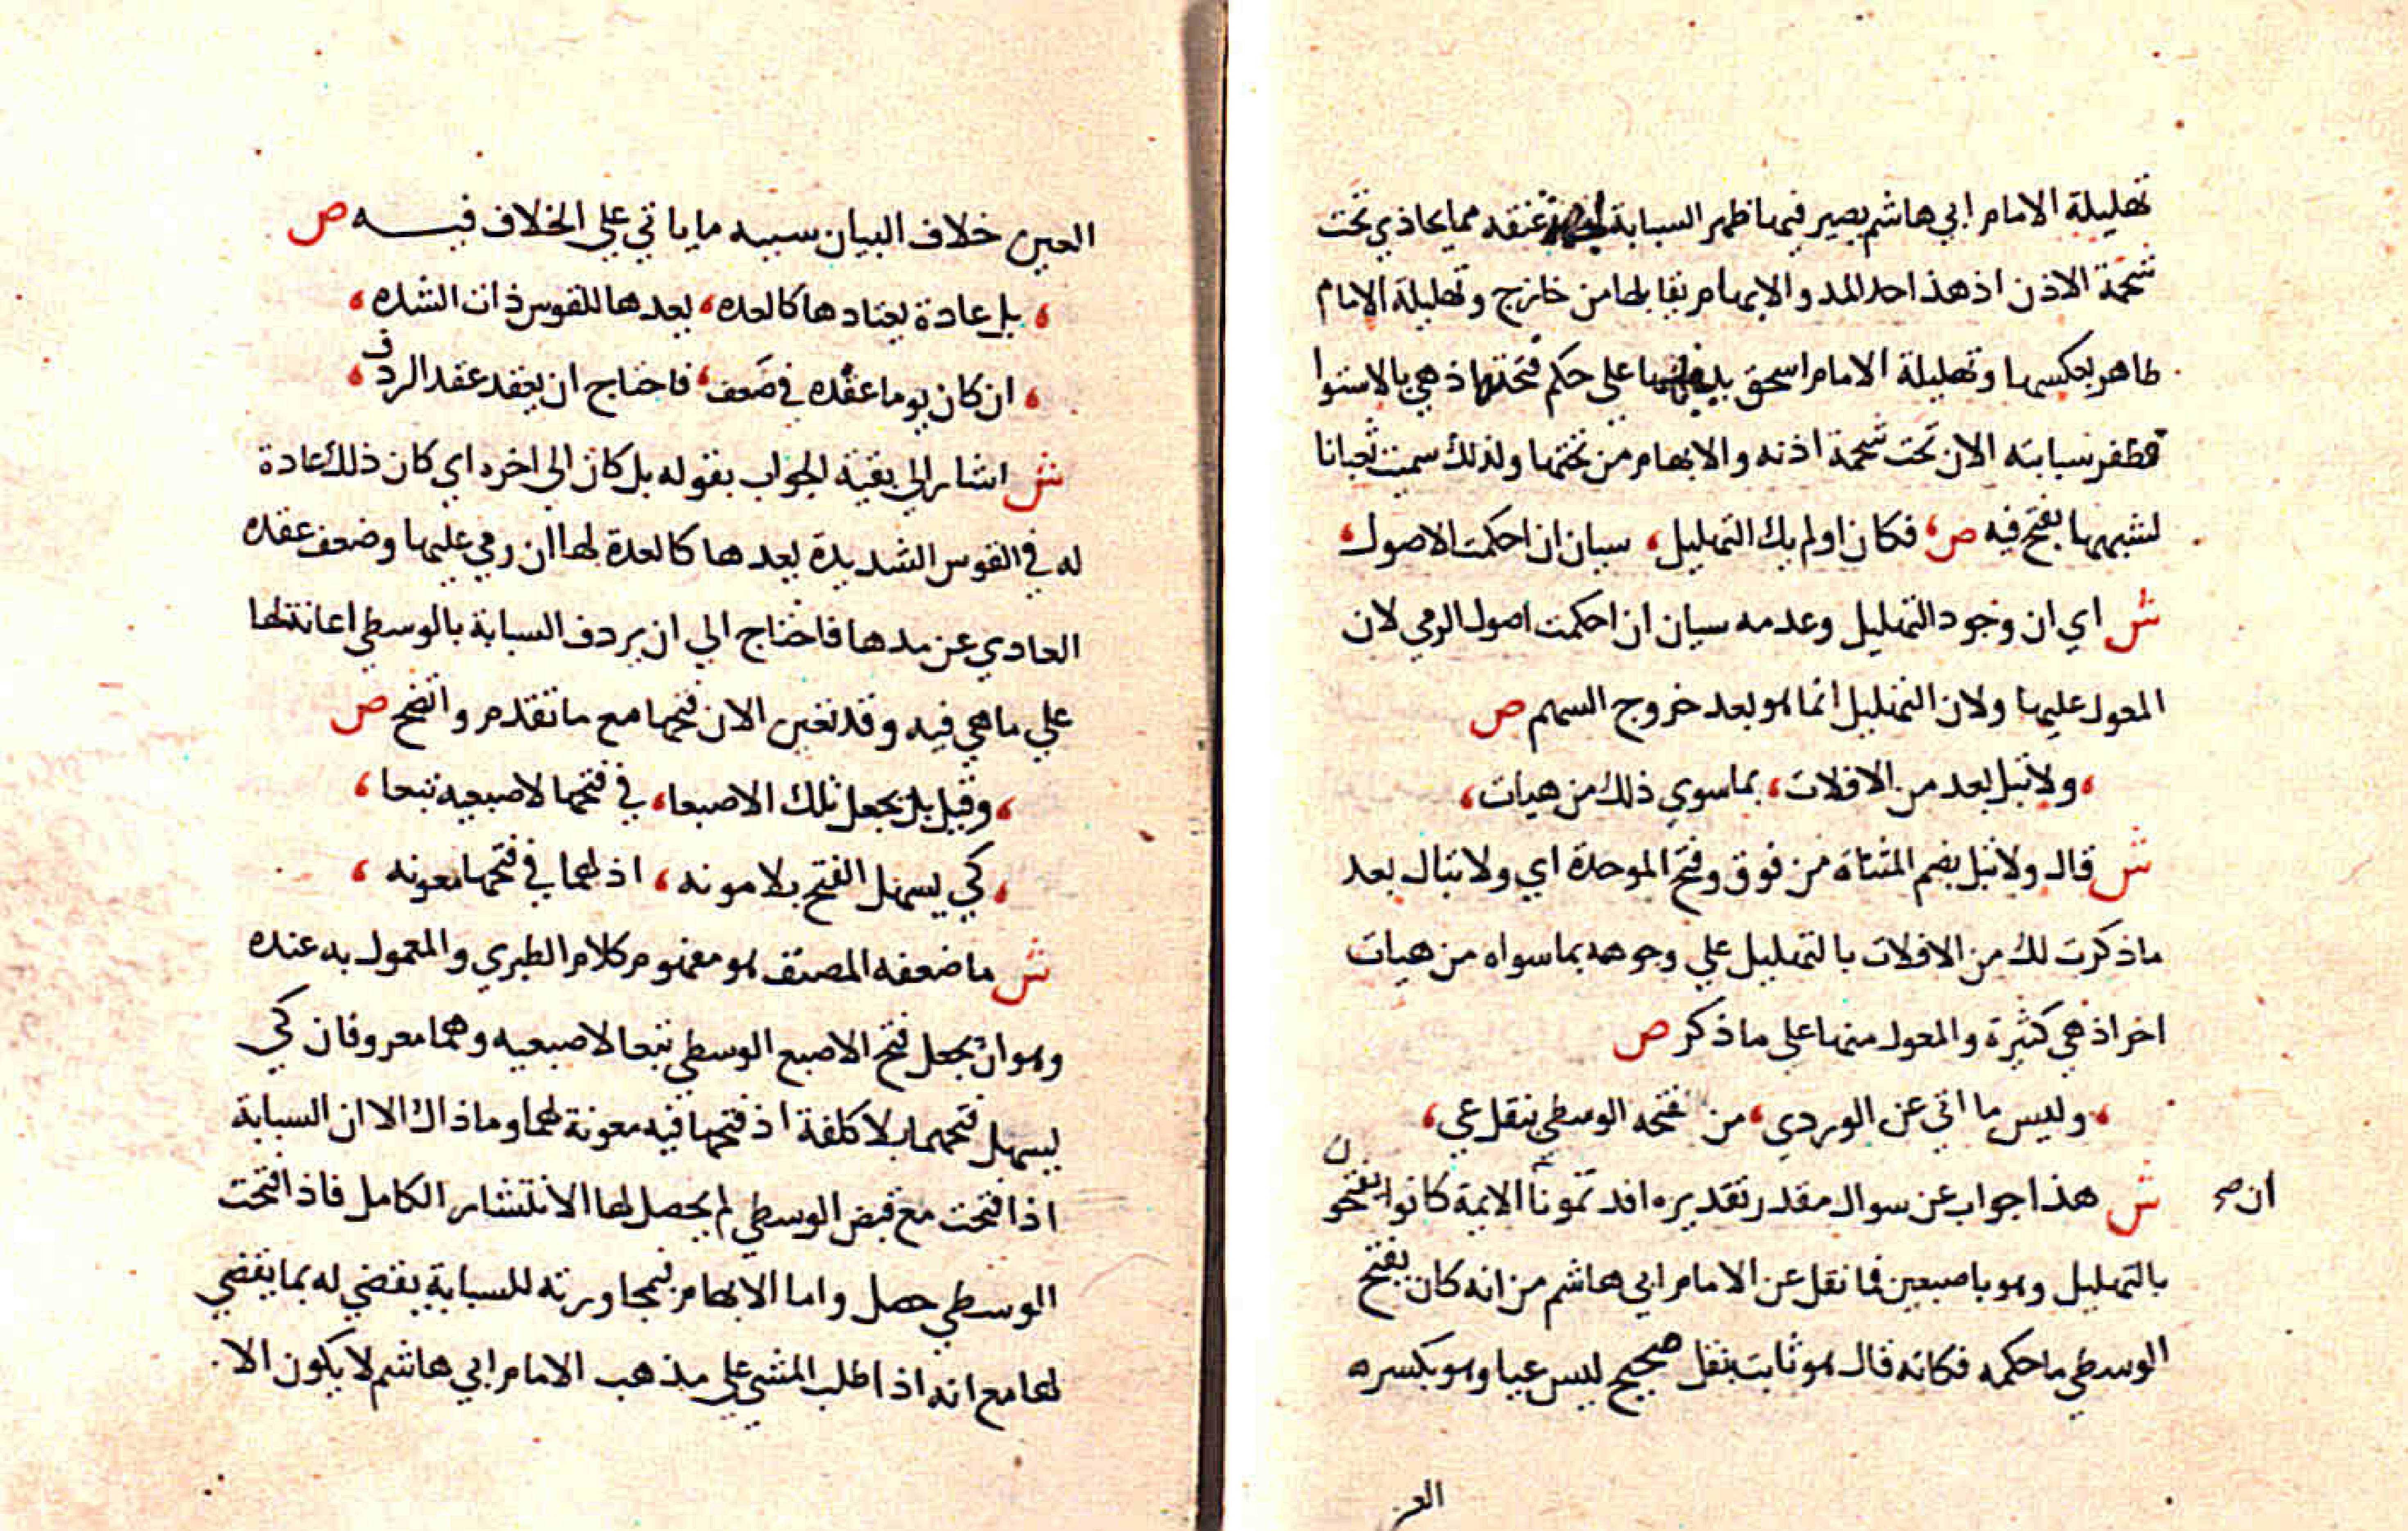 تهليلة الامام ابي هاشم يصير فيها ظهر السبابة عنقه مما يحاذي تحت
شحمة الاذن اذ هذا حد المد والابهام يقابلها من خارج وتهليلة الامام
طاهر بعكسها وتهليلة الامام اسحق على حكم فتحتها اذ هي بالاستوا
فظفر سبابته الان تحت شحمة اذنه والابهام من تحتها ولذلك سميت ثعبانا
لشبهها بفتح فيه ص، فكان او لم يك التهليل، سيان ان احكمت الاصول،
ش اي ان وجود التهليل وعدمه سيان ان احكمت اصول الرمي لان
المعول عليها ولان التهليل انما هو بعد خروج السهم ص
، ولا تبل بعد من الافلات، بما سوي ذلك من هيات،
ش قال ولا تبل بضم المثناة من فوق وفتح الموحدة اي ولا تبال بعد
ما ذكرت لك من الافلات بالتهليل علي وجوهه بما سواه من هيات
اخر اذ هي كثيرة والمعول منها على ما ذكر ص
، وليس ما اتي عن الوردي، من فتحه الوسطي بنقل عي،
ش هذا جواب عن سوال مقدر تقديره اقد تمونا الايمة كانوا يفتحون
ان صح
بالتهليل وهو باصبعين فما نقل عن الامام ابي هاشم من انه كان يفتح
الوسطي ما حكمه فكانه قال هو ثابت بنقل صحيح ليس عيا وهو بكسره
العين
العين خلاف البيان سببه ما ياتي علي الخلاف فيه ص
، بل عادة يعتادها كالعده، يعدها للقوس ذات الشده،
، ان كان يوما عقده في ضعف، فاحتاج ان يعقد عقد الردف،
ش اشار الي بقية الجواب بقوله بل كان الي اخره اي كان ذلك عادة
له في القوس الشديدة يعدها كالعدة لها ان رمي عليها وضعف عقده
العادي عن مدها فاحتاج الي ان يردف السبابة بالوسطي اعانة لها
علي ما هي فيه وقد تعين الان فتحها مع ما تقدم واتضح ص
، وقيل بل يجعل تلك الاصبعا، في فتحها لاصبعيه تبعا،
، كي يسهل الفتح بلا مونه، اذ لهما في فتحها معونه،
ش ما ضعفه المصنف هو مفهوم كلام الطبري والمعمول به عنده
وهو ان يجعل فتح الاصبع الوسطي تبعا لاصبعيه وهما معروفان كي
يسهل فتحهما بلا كلفة اذ فتحها فيه معونة لهما وما ذاك الا ان السبابة
اذا فتحت مع قبض الوسطي لم يحصل لها الانتشار الكامل فاذا فتحت
الوسطي حصل واما الابهام فمجاورته للسبابة يقضي له بما يقضي
لها مع انه اذا طلب المشي علي مذهب الامام ابي هاشم لا يكون الا